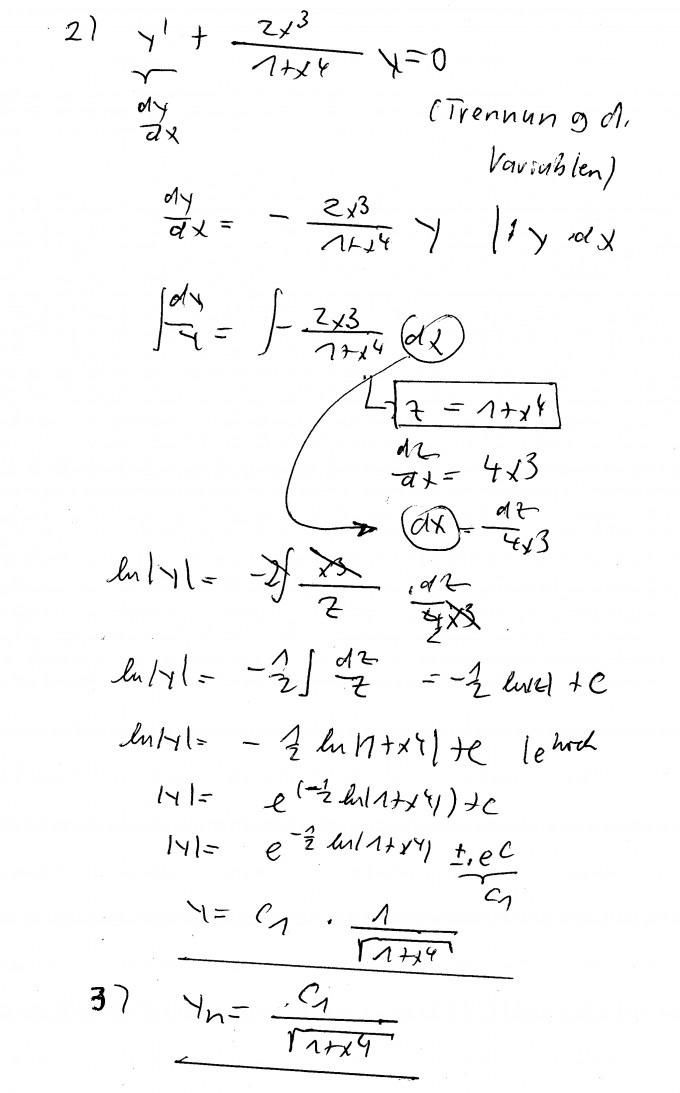 2) y' + 2x³/(1+x⁴) y = 0
dy/dx
(Trennung d.
Variablen)
dy/dx = - 2x³/(1+x⁴) y |: y · dx
∫ dy/y = ∫ - 2x³/(1+x⁴) dx
z = 1+x⁴
dz/dx = 4x³
dx = dz/4x³
ln|y| = -2∫ x³/z · dz/4x³
2
ln|y| = -1/2 ∫ dz/z = -1/2 ln|z| + C
ln|y| = - 1/2 ln|1+x⁴| + C | e hoch
|y| = e^(-1/2 ln(1+x⁴)) + C
|y| = e^(-1/2 ln(1+x⁴)) ± · e^C
C₁
y = C₁ · 1/√(1+x⁴)
3) yₕ = C₁/√(1+x⁴)